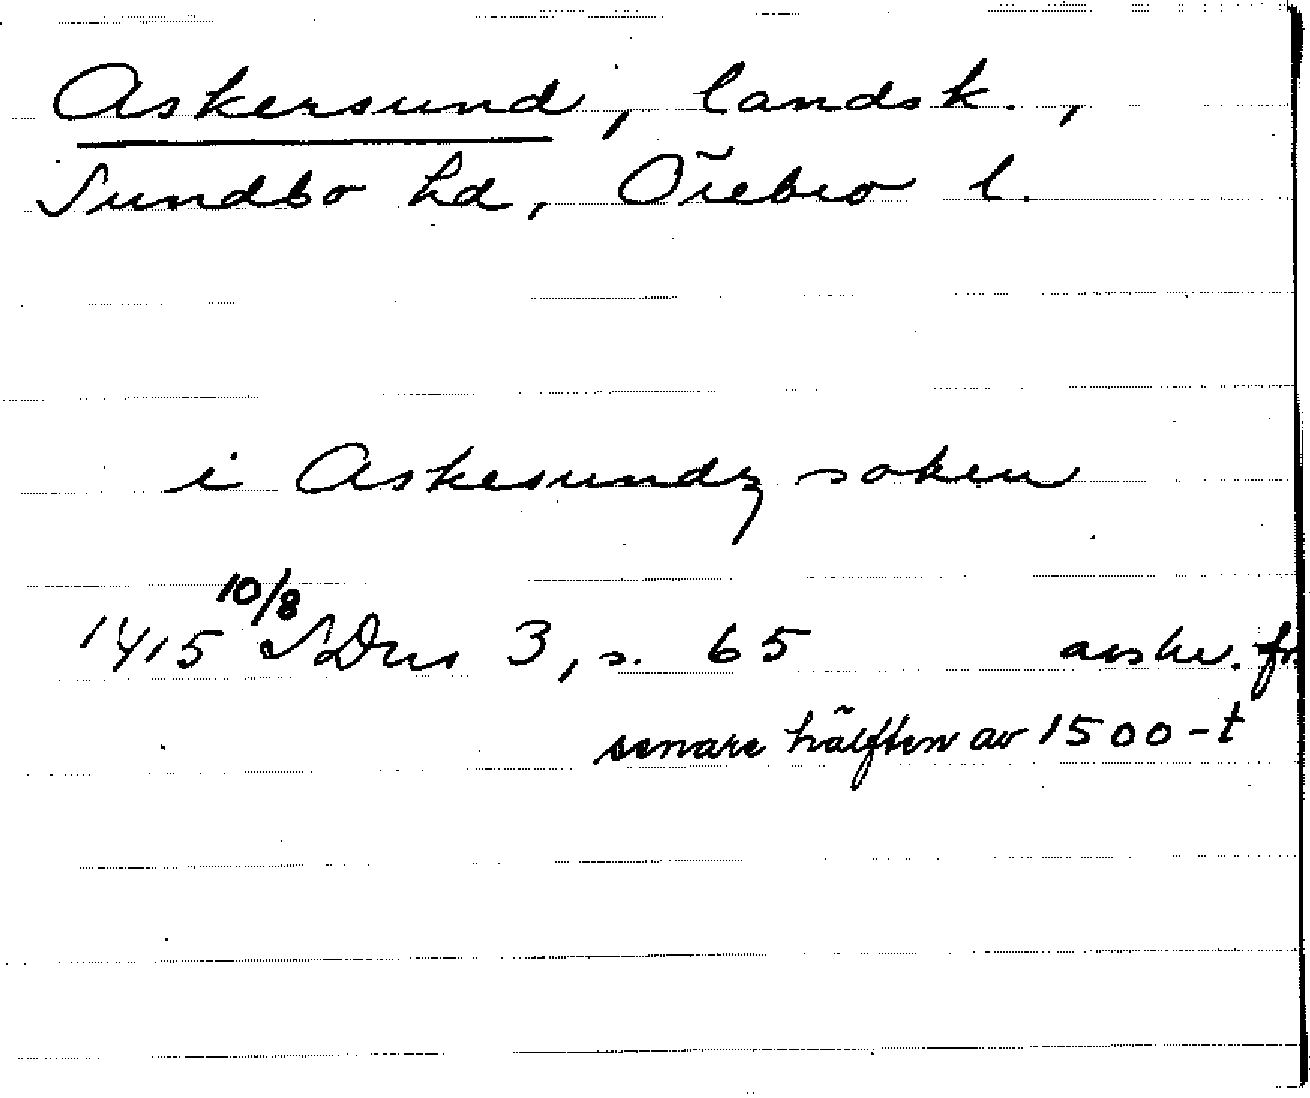 Askersund, landsk.,
Sundbo hd, Örebro l.
i Askesundz soken
1415 10/8 SDns 3, s. 65 avskr. fr.
senare hälften av 1500-t